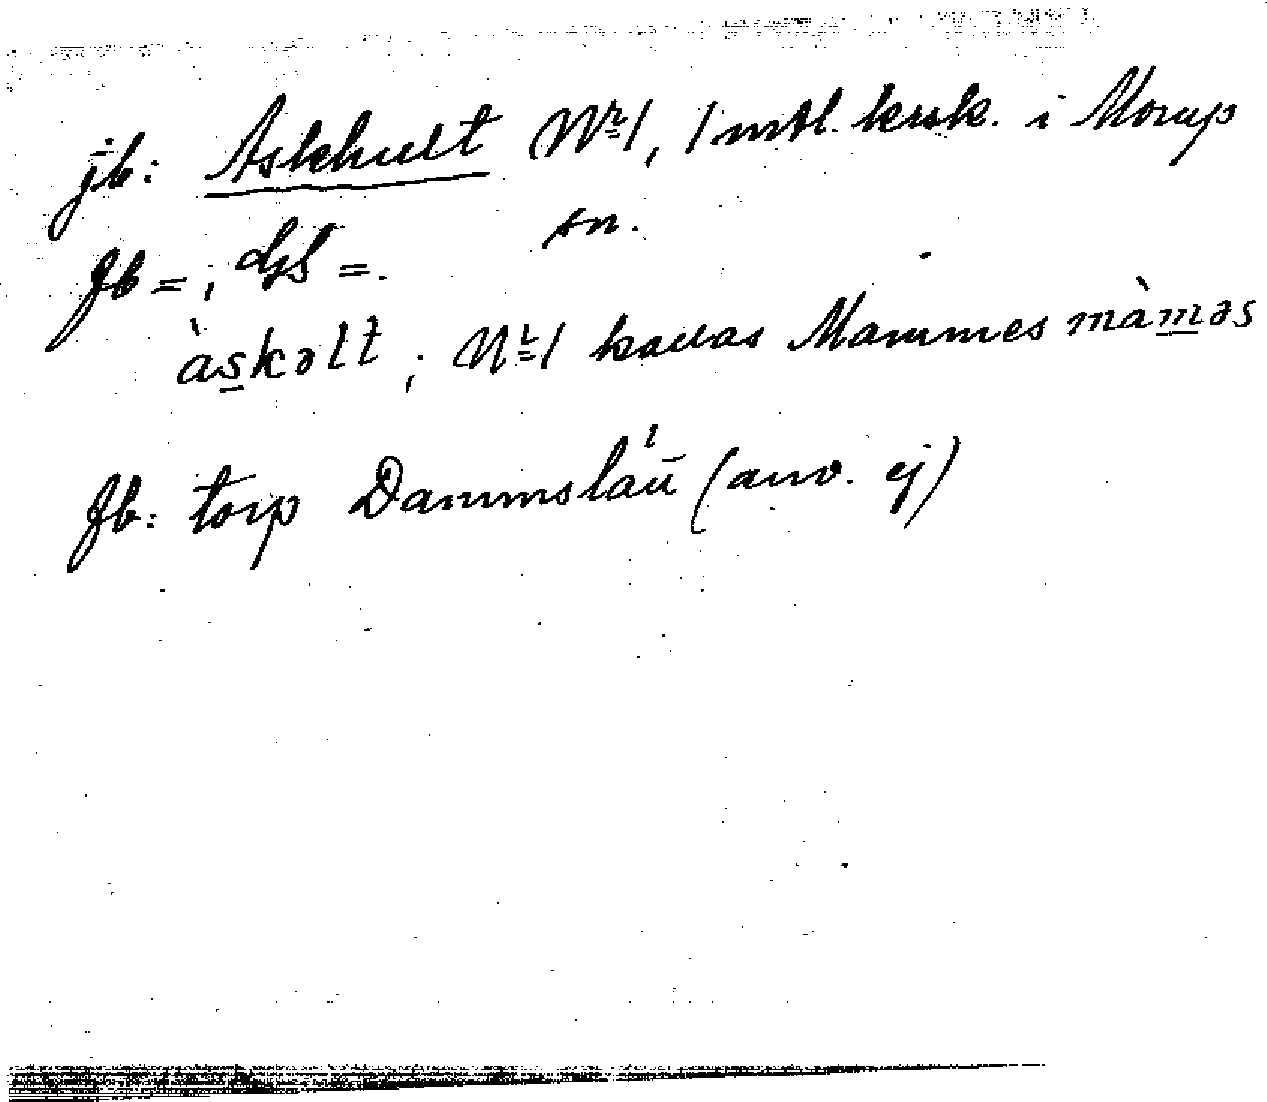 jb: Askhult Nr 1, 1 mtl. krsk. i Morup
sn.
Jb =, GS =.
àskəlt; Nr 1 kallas Mammes màməs
Jb: torp Dammslätt (anv. ej)